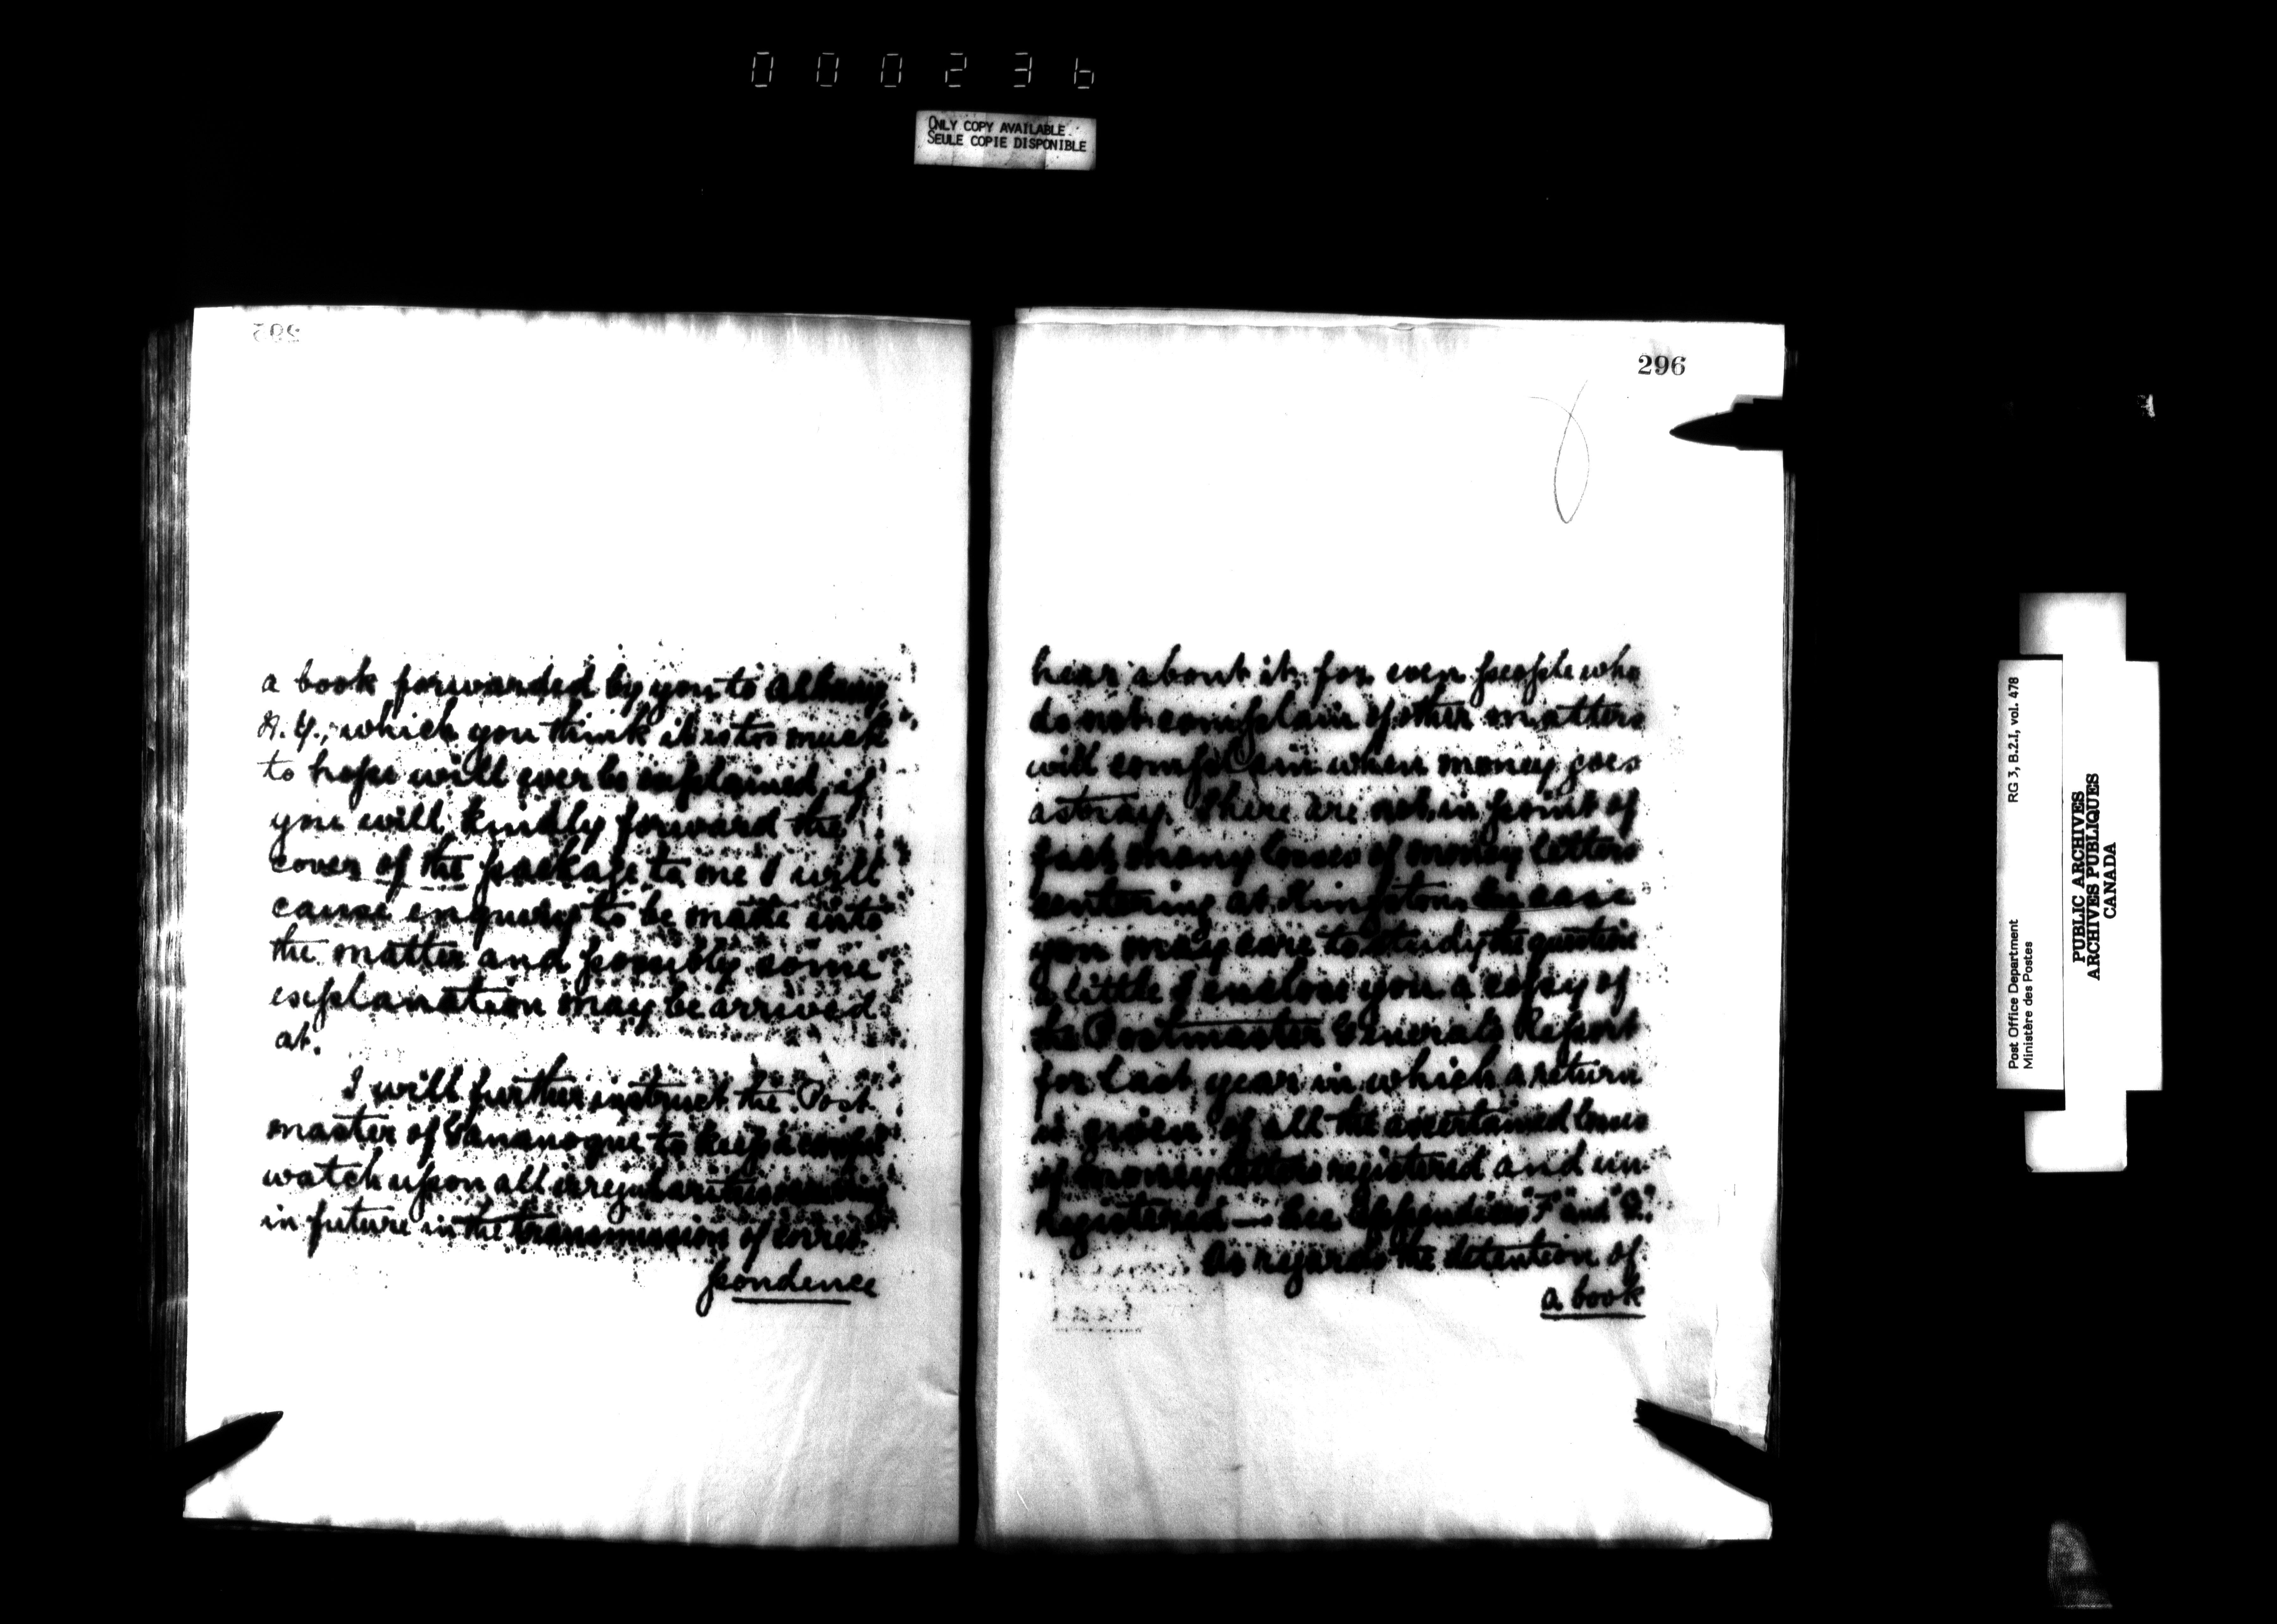 000236
ONLY COPY AVAILABLE
SEULE COPIE DISPONIBLE
295
a book forwarded by you to Albany
N.Y., which you think it is too much
to hope will ever be explained, if
you will kindly forward the
cover of the package to me I will
cause enquiry to be made into
the matter and possibly some
explanation may be arrived
at.
I will further instruct the Post
master of Gananoque to keep a
watch upon all irregularities
in future in the transmission of corres
pondence
296
hear about it for even people who
do not complain of other matters
will complain when money goes
astray. There are not in point of
fact many losses of money letters
centering at Kingston. In case
you may care to study the question
a little I enclose you a copy of
the Postmaster Generals Report
for last year in which a return
is given of all the ascertained losses
of money letters registered and un
registered — See Appendices "F" and
As regards the detention of
a book
Post Office Department
Ministère des Postes
RG 3, B.2.I, vol. 478
PUBLIC ARCHIVES
ARCHIVES PUBLIQUES
CANADA